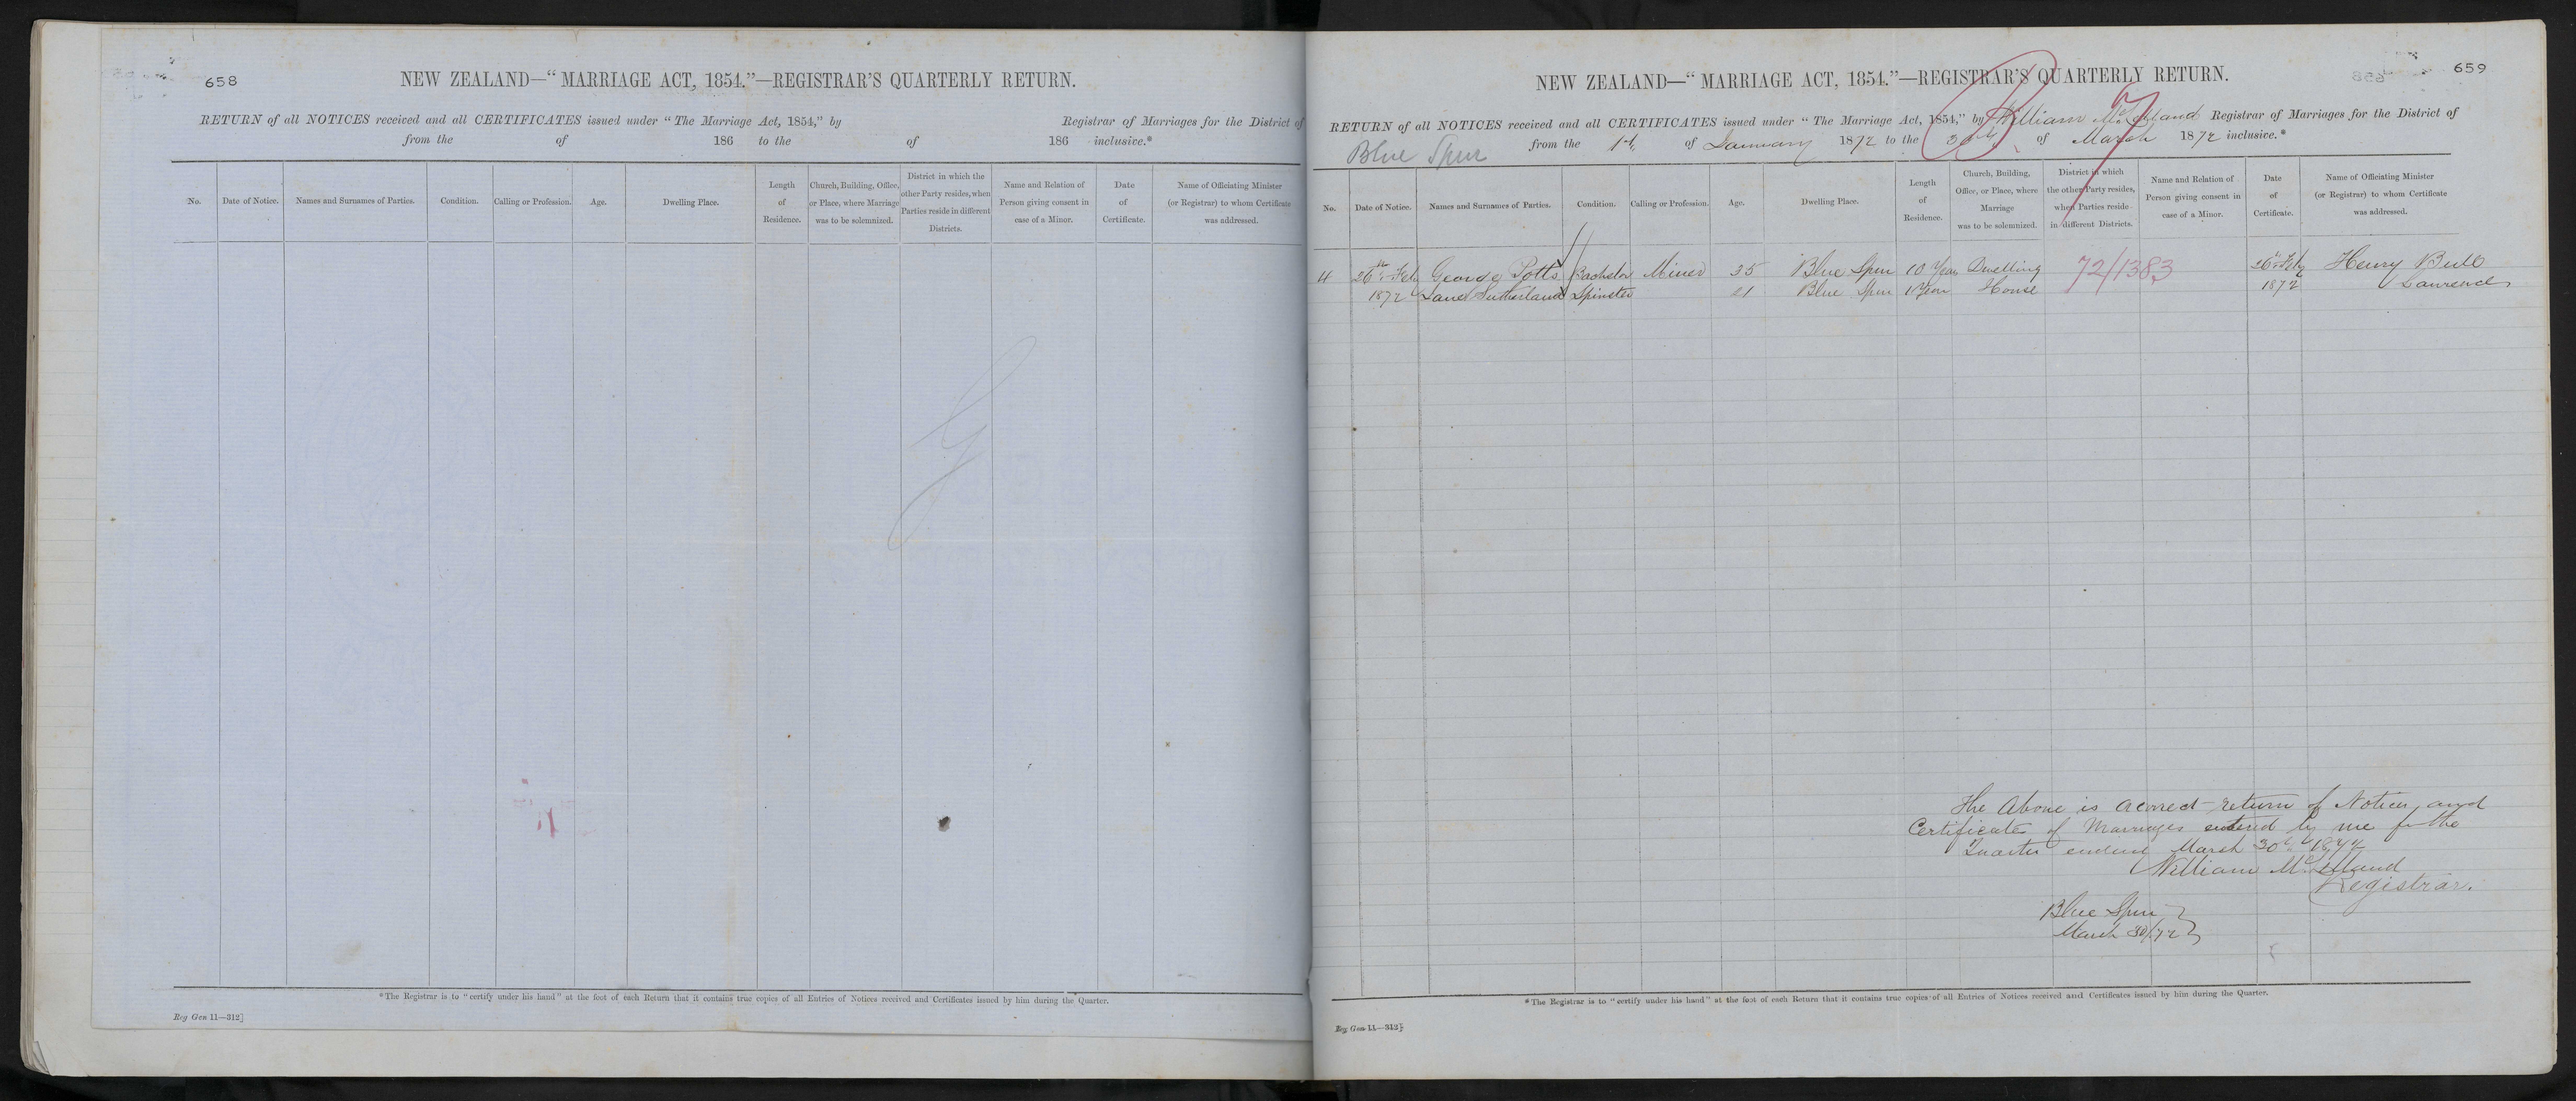 658
NEW ZEALAND—“MARRIAGE ACT, 1854.”—REGISTRAR'S QUARTERLY RETURN.
RETURN of all NOTICES received and all CERTIFICATES issued under “The Marriage Act, 1854,” by Registrar of Marriages for the District of
from the of 186 to the of 186 inclusive.*
No. Date of Notice. Names and Surnames of Parties. Condition. Calling or Profession. Age. Dwelling Place. Length of Residence. Church, Building, Office, or Place, where Marriage was to be solemnized. District in which the other Party resides, when Parties reside in different Districts. Name and Relation of Person giving consent in case of a Minor. Date of Certificate. Name of Officiating Minister (or Registrar) to whom Certificate was addressed.
*The Registrar is to “certify under his hand” at the foot of each Return that it contains true copies of all Entries of Notices received and Certificates issued by him during the Quarter.
Reg Gen 11—312]
659
NEW ZEALAND—“MARRIAGE ACT, 1854.”—REGISTRAR'S QUARTERLY RETURN.
RETURN of all NOTICES received and all CERTIFICATES issued under “The Marriage Act, 1854,” by William McLelland Registrar of Marriages for the District of
Blue Spur from the 1st of January 1872 to the 30th of March 1872 inclusive.*
No. Date of Notice. Names and Surnames of Parties. Condition. Calling or Profession. Age. Dwelling Place. Length of Residence. Church, Building, Office, or Place, where Marriage was to be solemnized. District in which the other Party resides, when Parties reside in different Districts. Name and Relation of Person giving consent in case of a Minor. Date of Certificate. Name of Officiating Minister (or Registrar) to whom Certificate was addressed.
4 26th Feb George Potts Bachelor Miner 35 Blue Spur 10 Years Dwelling 72/1383 26th Feby Henry Bull
1872 Janet Sutherland Spinster 21 Blue Spur 1 Year House 1872 Lawrence
The Above is a correct return of Notices, and
Certificates of Marriages entered by me for the
Quarter ending March 30th 1872
William McLelland
Registrar.
Blue Spur
March 30/72
*The Registrar is to “certify under his hand” at the foot of each Return that it contains true copies of all Entries of Notices received and Certificates issued by him during the Quarter.
Reg Gen 11—312]